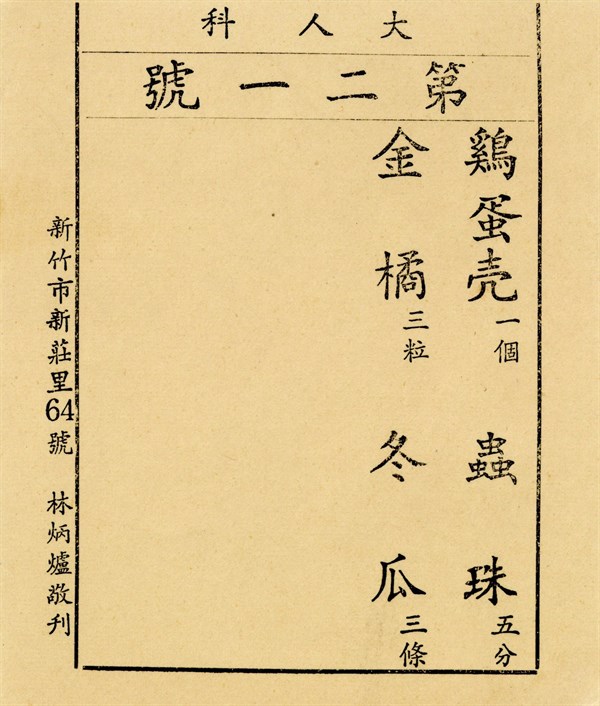 大人科
第二一號
鷄蛋壳一個 蟲珠五分
金橘三粒 冬瓜三條
新竹市新莊里64號 林炳爐敬刊